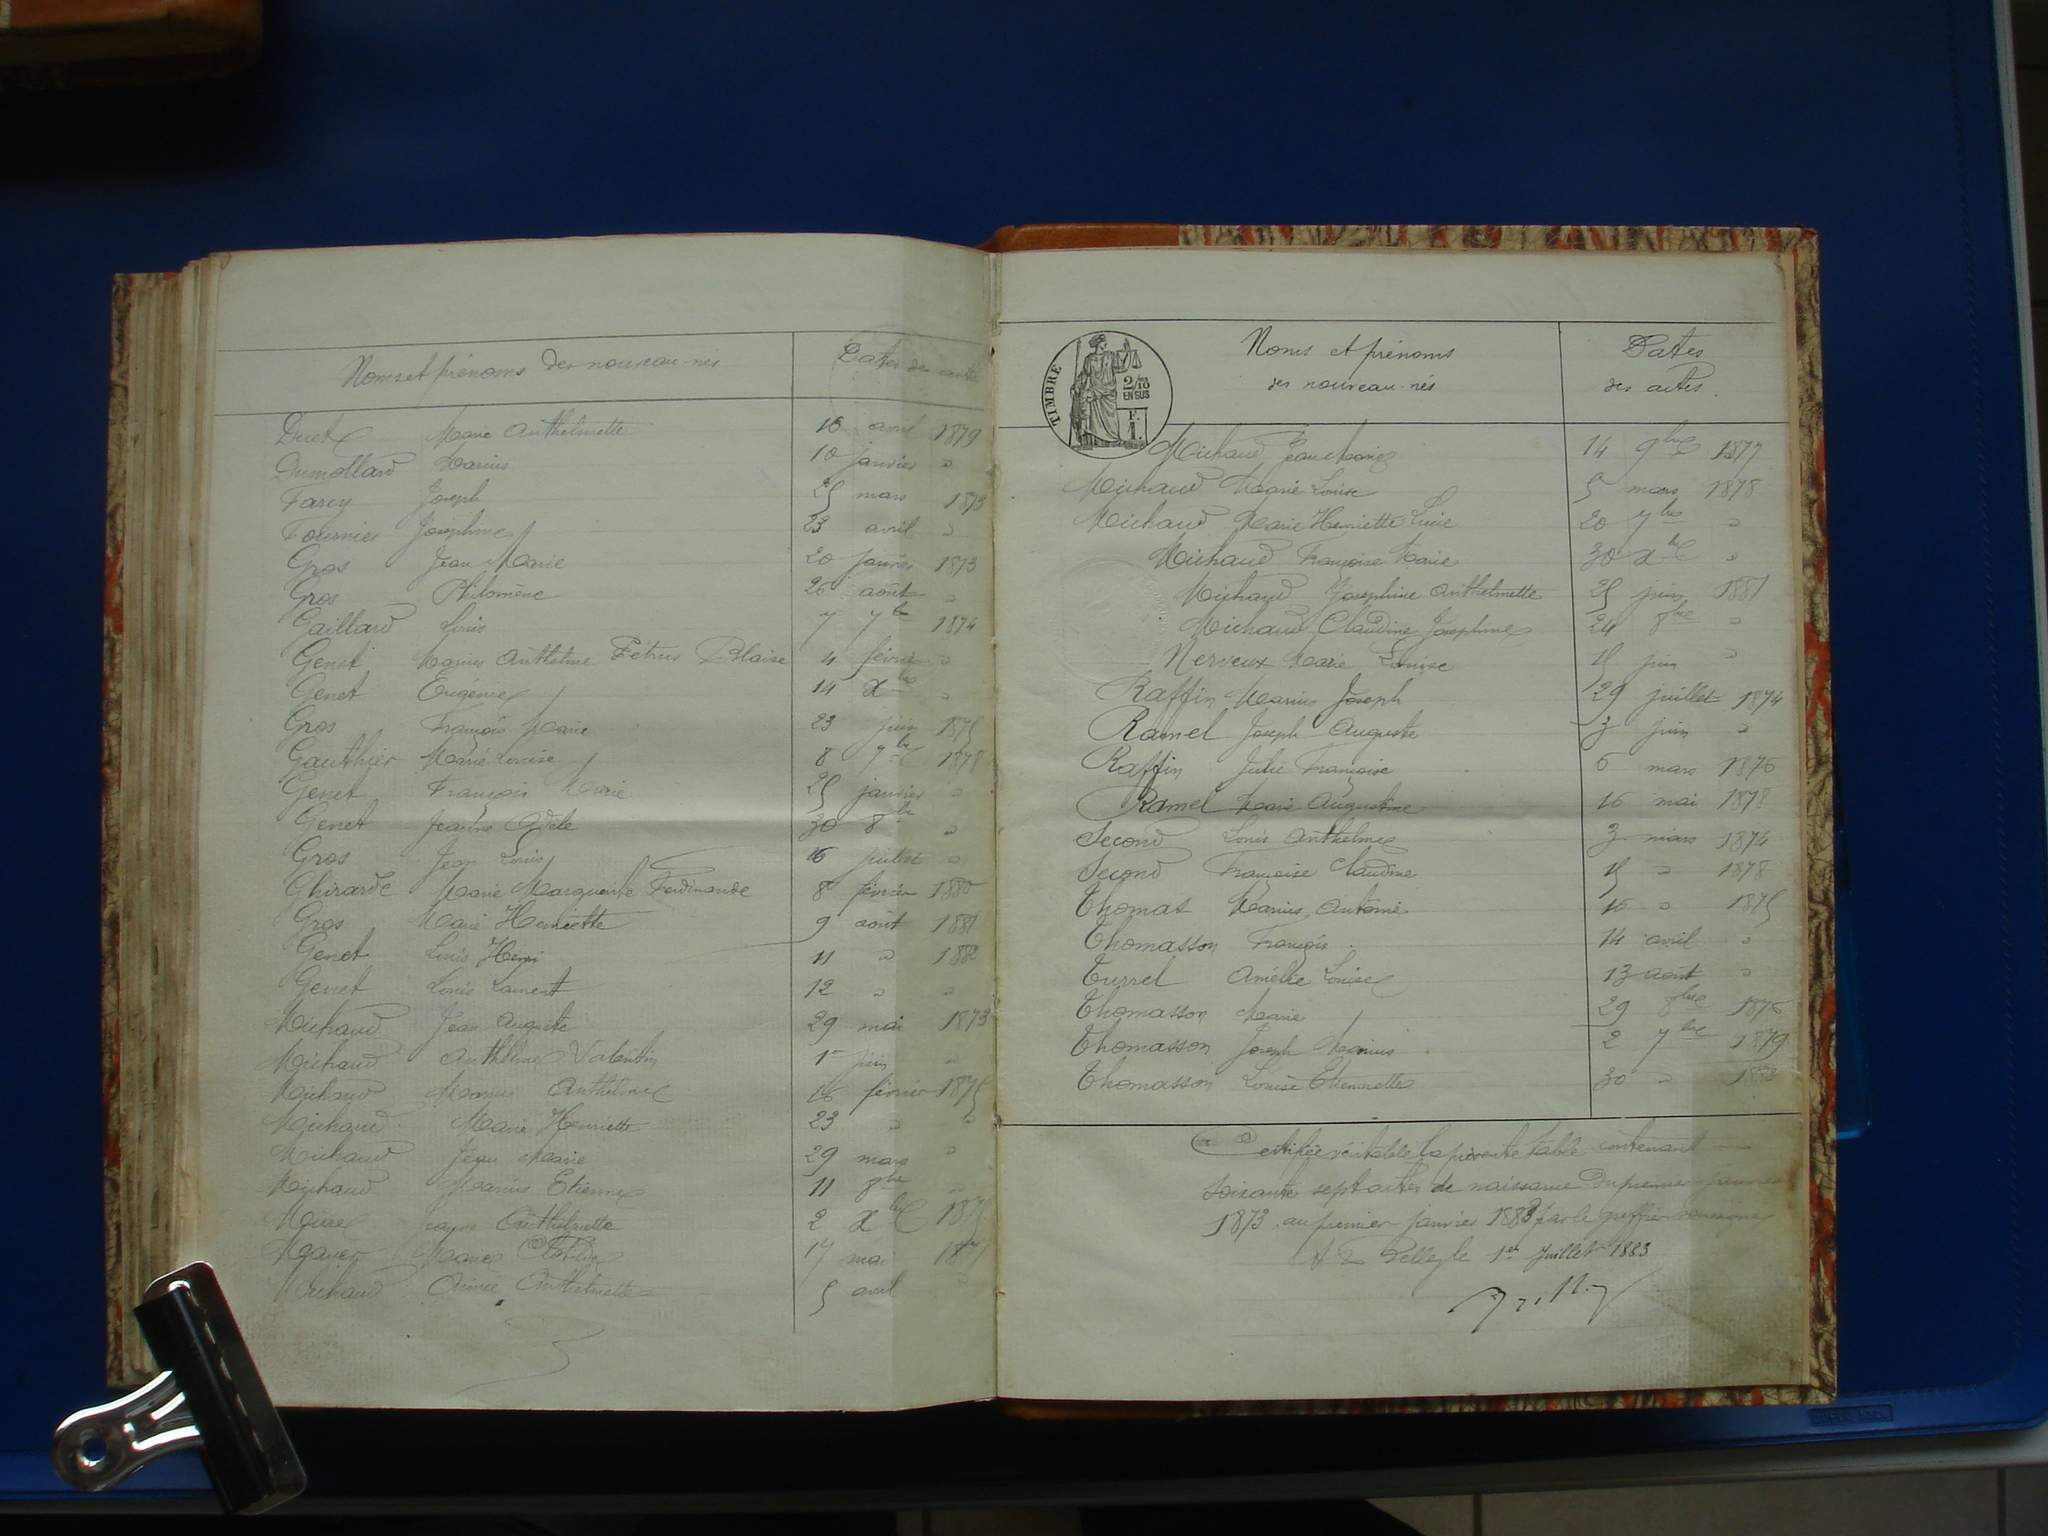 Noms et prénoms des nouveau-nés
Dates des actes
Duet Marie Anthelmette 16 avril 1879
Dumollard Marius 10 janvier "
Farcy Joseph 25 mars 1873
Fournier Josephine 23 avril "
Gros Jean Marie 20 janvier 1873
Gros Philomène 26 août "
Gaillard Louis 7 7bre 1874
Genet Marius Anthelme Pétrus Blaise 4 février "
Genet Eugénie 14 Xbre "
Gros François Marie 23 juin 1875
Gauthier Marie Louise 8 7bre 1878
Genet François Marie 25 janvier "
Genet Jeanne Adèle 30 8bre "
Gros Jean Louis 16 juillet "
Ghirarde Marie Marguerite Ferdinande 8 février 1880
Gros Marie Henriette 9 août 1881
Genet Louis Henri 11 " 1882
Genet Louis Laurent 12 " "
Michaud Jean Auguste 29 mai 1873
Michaud Anthelme Valentin 1er juin "
Michaud Marius Anthelme 16 février 1875
Michaud Marie Henriette 23 " "
Michaud Jean Marie 29 mars "
Michaud Marius Etienne 11 "
Jeanne Anthelmette 2 Xbre
Marie 17 mai
Michaud Aimée Anthelmette 5 avril
TIMBRE
2/10
EN SUS
F.
1.
Noms et prénoms
des nouveau-nés
Dates
des actes
Michaud Jean Marie 14 9bre 1877
Michaud Marie Louise 5 mars 1878
Michaud Marie Henriette Lucie 20 7bre "
Michaud Françoise Marie 30 Xbre "
Michaud Josephine Anthelmette 25 juin 1881
Michaud Claudine Josephine 24 8bre "
Nerveux Marie Louise 15 juin "
Raffin Marius Joseph 29 juillet 1874
Ramel Joseph Auguste 3 juin "
Raffin Julie Françoise 6 mars 1876
Ramel Marie Augustine 16 mai 1878
Second Louis Anthelme 3 mars 1874
Second Françoise Claudine 15 " 1878
Thomas Marius Antoine 16 " 1875
Thomasson François 14 avril "
Turrel Amélie Louise 13 août "
Thomasson Marie 29 8bre 1876
Thomasson Joseph Marius 2 7bre 1879
Thomasson Louise Etiennette 30 "
Certifiée véritable la présente table contenant
soixante sept actes de naissance du premier janvier
1873 au premier janvier 1883 par le greffier soussigné
Belley le 1er Juillet 1883